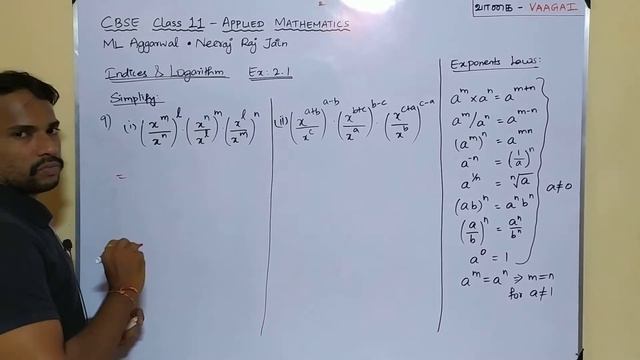 CBSE Class 11 – Applied Mathematics
வாகை - VAAGAI
ML Aggarwal • Neeraj Raj Jain
Indices & Logarithm Ex: 2.1
Simplify:
9) (i) (x^m/x^n)^l (x^n/x^l)^m (x^l/x^m)^n
=
(ii) (x^(a+b)/x^c)^(a-b) · (x^(b+c)/x^a)^(b-c) · (x^(c+a)/x^b)^(c-a)
Exponents Laws:
a^m × a^n = a^(m+n)
a^m / a^n = a^(m-n)
(a^m)^n = a^(mn)
a^(-n) = (1/a)^n
a^(1/n) = ⁿ√a
a≠0
(ab)^n = a^n b^n
(a/b)^n = a^n/b^n
a^0 = 1
a^m = a^n ⇒ m=n
for a≠1